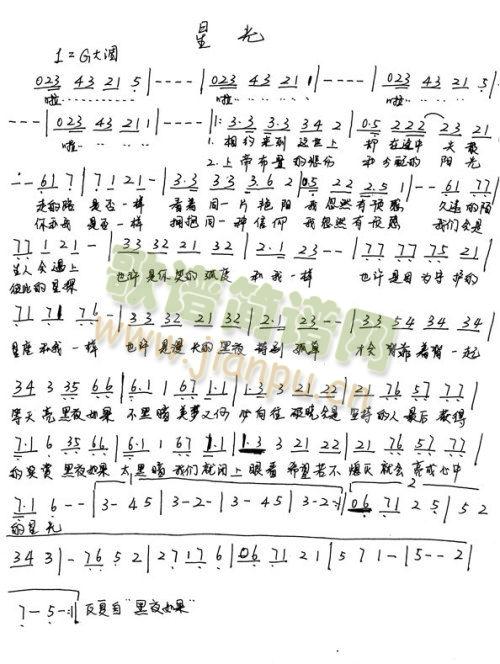 星光
1=G大调
023 43 21 5 | - - - - | 023 43 21 1 | - - - - | 023 43 21 5 |
啦 啦 啦
- - - - | 023 43 21 1 | - - - - |: 3·3 3·3 34 2 | 0·5 222 23 21 |
啦 1.相约来到这世上 却在途中
2.上帝布置的悲伤 和分配的阳光
- - 61 7 | 7 71 21 - | 3·3 33 3·6 2 | 05 22 2·5 1 | - - 61 77 |
走的路 是否一样 看着同一片艳阳 我忽然有预感
你和我 是否一样 拥抱同一种信仰 我忽然有预感 我们会是
77 1 21 - | 33 32 21 32 | 2·1 23 - - | 77 77 75 21 |
会遇上 也许是你哭的弧度 和我一样 也许是因为守护的
彼此的星探
71 71 76 - | 33 32 21 32 | 2·1 23 - - | 33 54 34 34 |
星座和我一样 也许是漫长的黑夜 特别孤单 才会背靠着背一起
34 3 35 66 | 6·1 1 67 1·1 | 1·3 3 21 22 | 21 76 57 77 |
等天亮 黑夜如果 不黑暗 美梦又何必向往 破晓会是坚持的人最后获得
7·1 6 35 66 | 6·1 1 67 1·1 | 1·3 3 21 22 | 21 76 57 77 |
的奖赏 黑夜如果太黑暗 我们就闭上眼看 希望若不熄灭就会亮成心中
7·1 6 - - | 3 - 4 5 | 3 - 2 - | 3 - 4 5 | 3 - 2 - :| 06 71 2 5 | 5 5 2
的星光
34 3 | - 76 5 2 | 2 7 1 7 6 | 06 71 21 | 5 7 1 - | 5 - - 2 |
7 - 5 - :| 反复自"黑夜如果"
歌谱简谱网
www.jianpu.cn